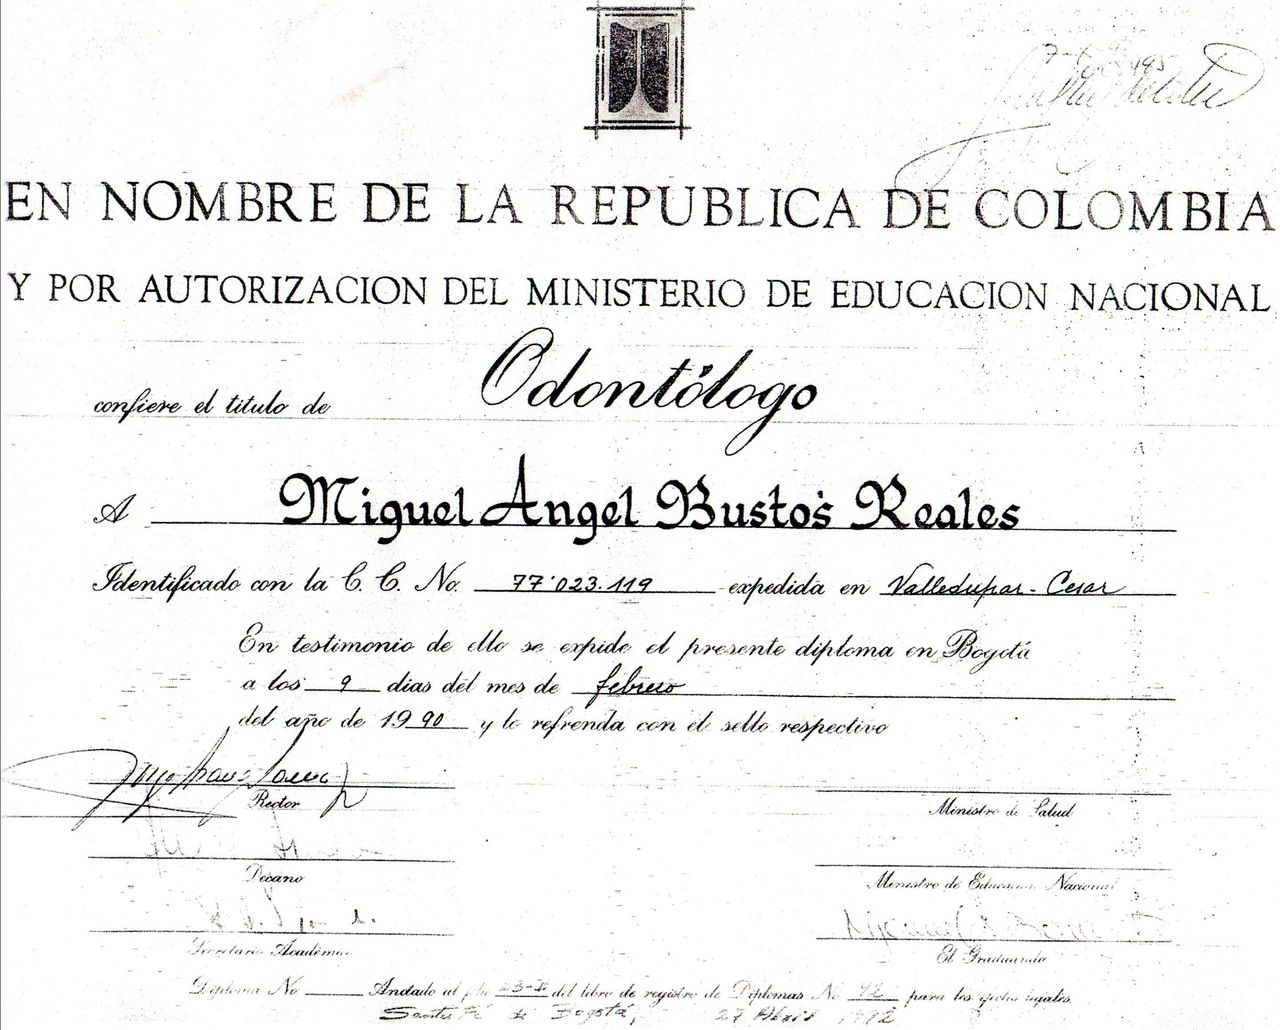 EN NOMBRE DE LA REPUBLICA DE COLOMBIA
Y POR AUTORIZACION DEL MINISTERIO DE EDUCACION NACIONAL
confiere el titulo de Odontólogo
A Miguel Angel Bustos Reales
Identificado con la C. C. No. 77'023.119 expedida en Valledupar - Cesar
En testimonio de ello se expide el presente diploma en Bogotá
a los 9 dias del mes de febrero
del año de 1990 y lo refrenda con el sello respectivo
Rector
Ministro de Salud
Decano
Ministro de Educacion Nacional
Secretario Académico
El Graduando
Diploma No Anotado al folio 23-I del libro de registro de Diplomas No 42 para los efectos legales.
Santafé de Bogotá, 27 Abril 1992